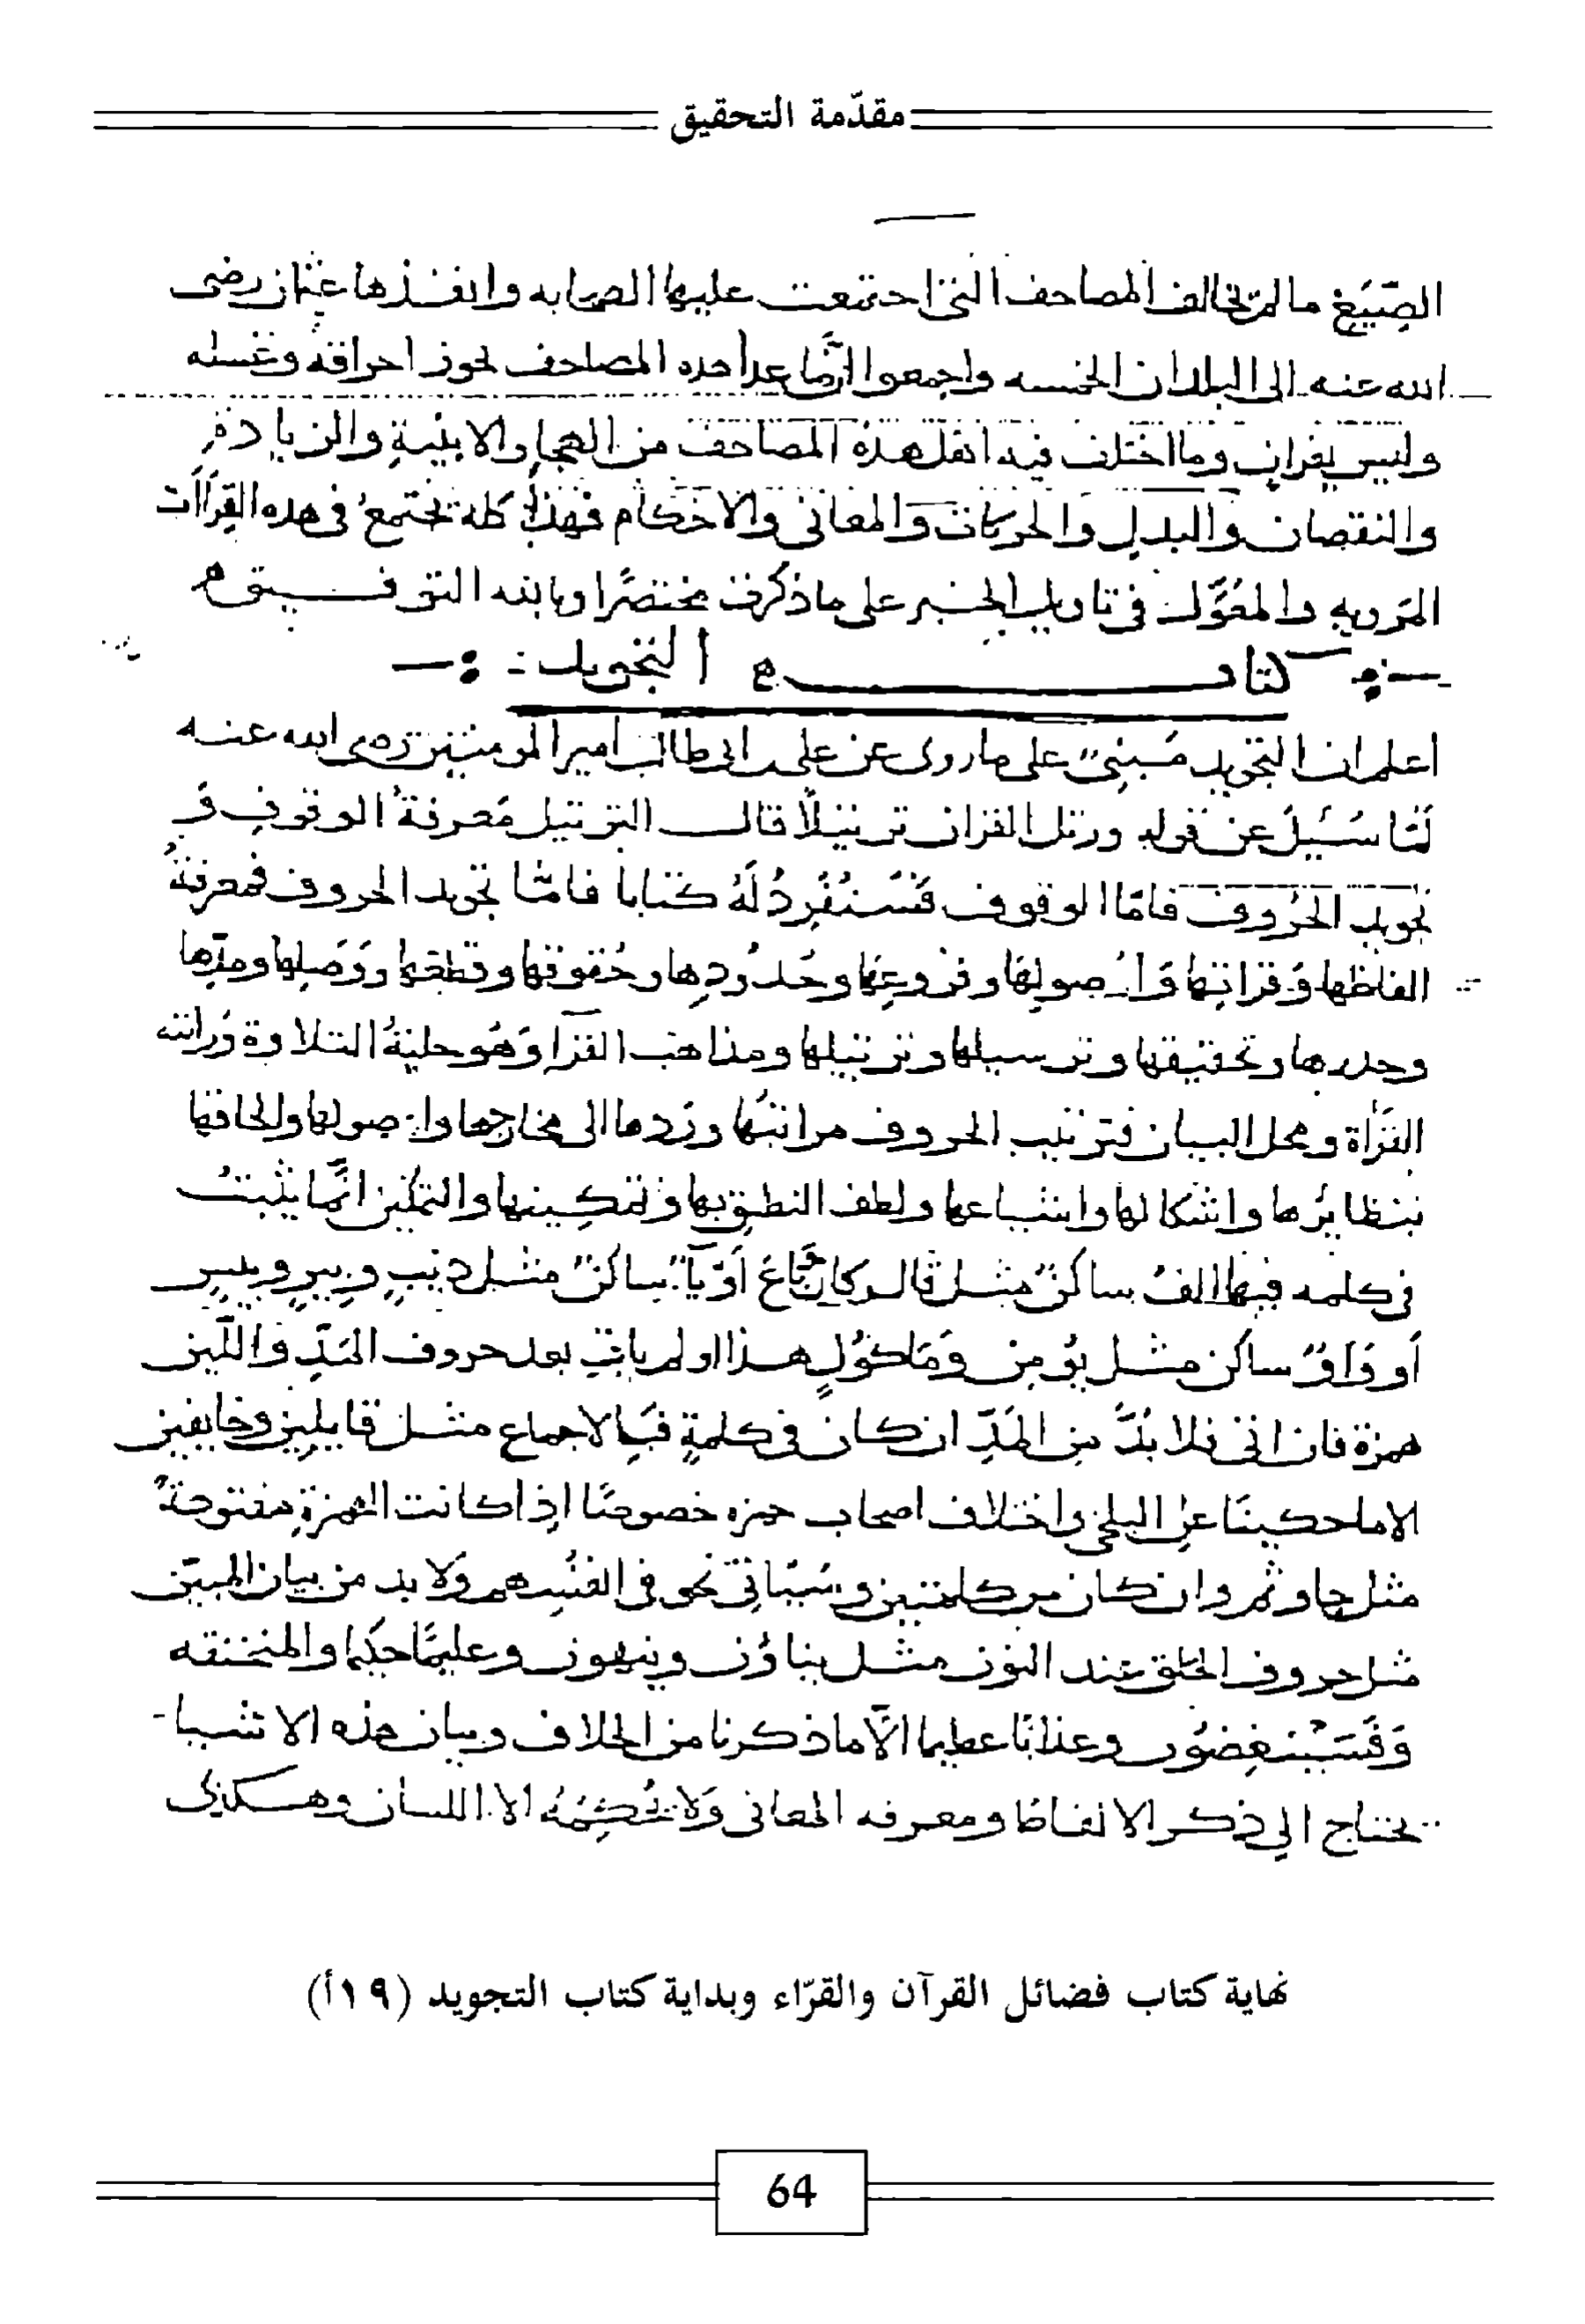 مقدّمة التحقيق
الصِّيَغ ما لم تخالف المصاحف التى اجتمعت عليها الصحابه وانفذها عثمان رضى
الله عنه الى البلدان الخمسه واجمعوا ان ما عدا هذه المصاحف يجوز احراقه وغسله
وليس بقران وما اختلف فيه اهل هذه المصاحف من الهجاء والابنية والزيادة
والنقصان والبدل والحركات والمعانى والاحكام فهذا كله يجتمع فى هذه القراات
المرويه والمعوّل فى تاويل الخبر على ما ذكرت مختصرًا وبالله التوفيق
كتاب التجويد
اعلم ان التجويد مبنىّ على ما روى عن على بن ابى طالب امير المومنين رضى الله عنه
لمّا سُئِلَ عن قوله ورتل القران ترتيلًا قال الترتيل مَعرفةُ الوقوف و
تجويد الحُروف فامّا الوقوف فَسَنُفرِدُ لَهُ كتابا فامّا تجويد الحروف فمعرفةُ
الفاظها وقراتها وَاُصولها وفروعِها وحُدُودِها وحُقوقها وقطعها ووَصلِها ومدّها
وحدرها وتحقيقها وترسيلها وترتيلها ومذاهب القرا وَهُو حليةُ التلاوة وزينة
القرَاة ومحل البيان فترتيب الحروف مراتبُها وردها الى مخارجها واصولها والحاقها
بنظايرها واشكالها واشباعها ولطف النطق بها وتمكينها والتمكين انّما يثبتُ
فى كلمه فيها الفُ ساكنٌ مثل قال وكان وبَاعَ أوْ يَآءٌ ساكنٌ مثل ذيب وبير وبيس
أو وَاوٌ ساكن مثل يُومن ومَاكول هذا اولم يات بعد حروف المَدِّ واللّين
همزة فان اتى فلا بُدَّ من المَدِّ ان كان فى كلمةٍ فبالاجماع مثل قايلين وخايفين
الا ما حكينَا عن البلخى واختلاف اصحاب حمزه خصوصًا اذا كانت الهمزة مفتوحةً
مثل جاو ثم وان كان من كلمتين وسَياتى نحو فى انفُسِهم وَلا بد من بيان المبيّن
مثل حروف الحلق عند النون مثل يناؤن وينهون وعليمًا حكيما والمنخنقه
وَفَسَيُنغِضُون وعذابًا عظيما الّا ما ذكرنا من الخلاف وبيان هذه الاشيا
يحتاج الى ذكر الالفاظ ومعرفه المعانى وَلا يُحكِمُهُ الا اللسان وهكذى
نهاية كتاب فضائل القرآن والقرّاء وبداية كتاب التجويد (١٩أ)
64